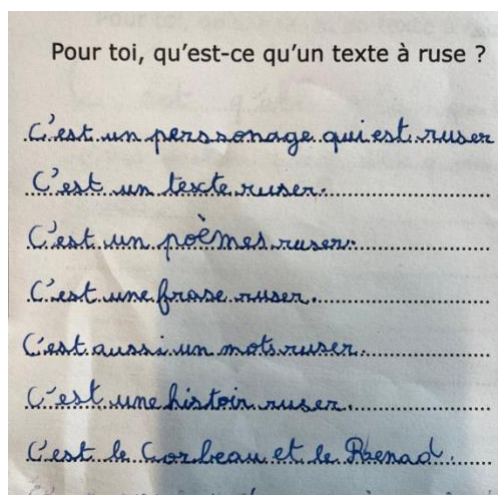 Pour toi, qu'est-ce qu'un texte à ruse ?
C'est un perssonage qui est ruser
C'est un texte ruser.
C'est un poèmes ruser.
C'est une frase ruser.
C'est aussi un mots ruser.
C'est une histoir ruser.
C'est le Corbeau et le Renad.